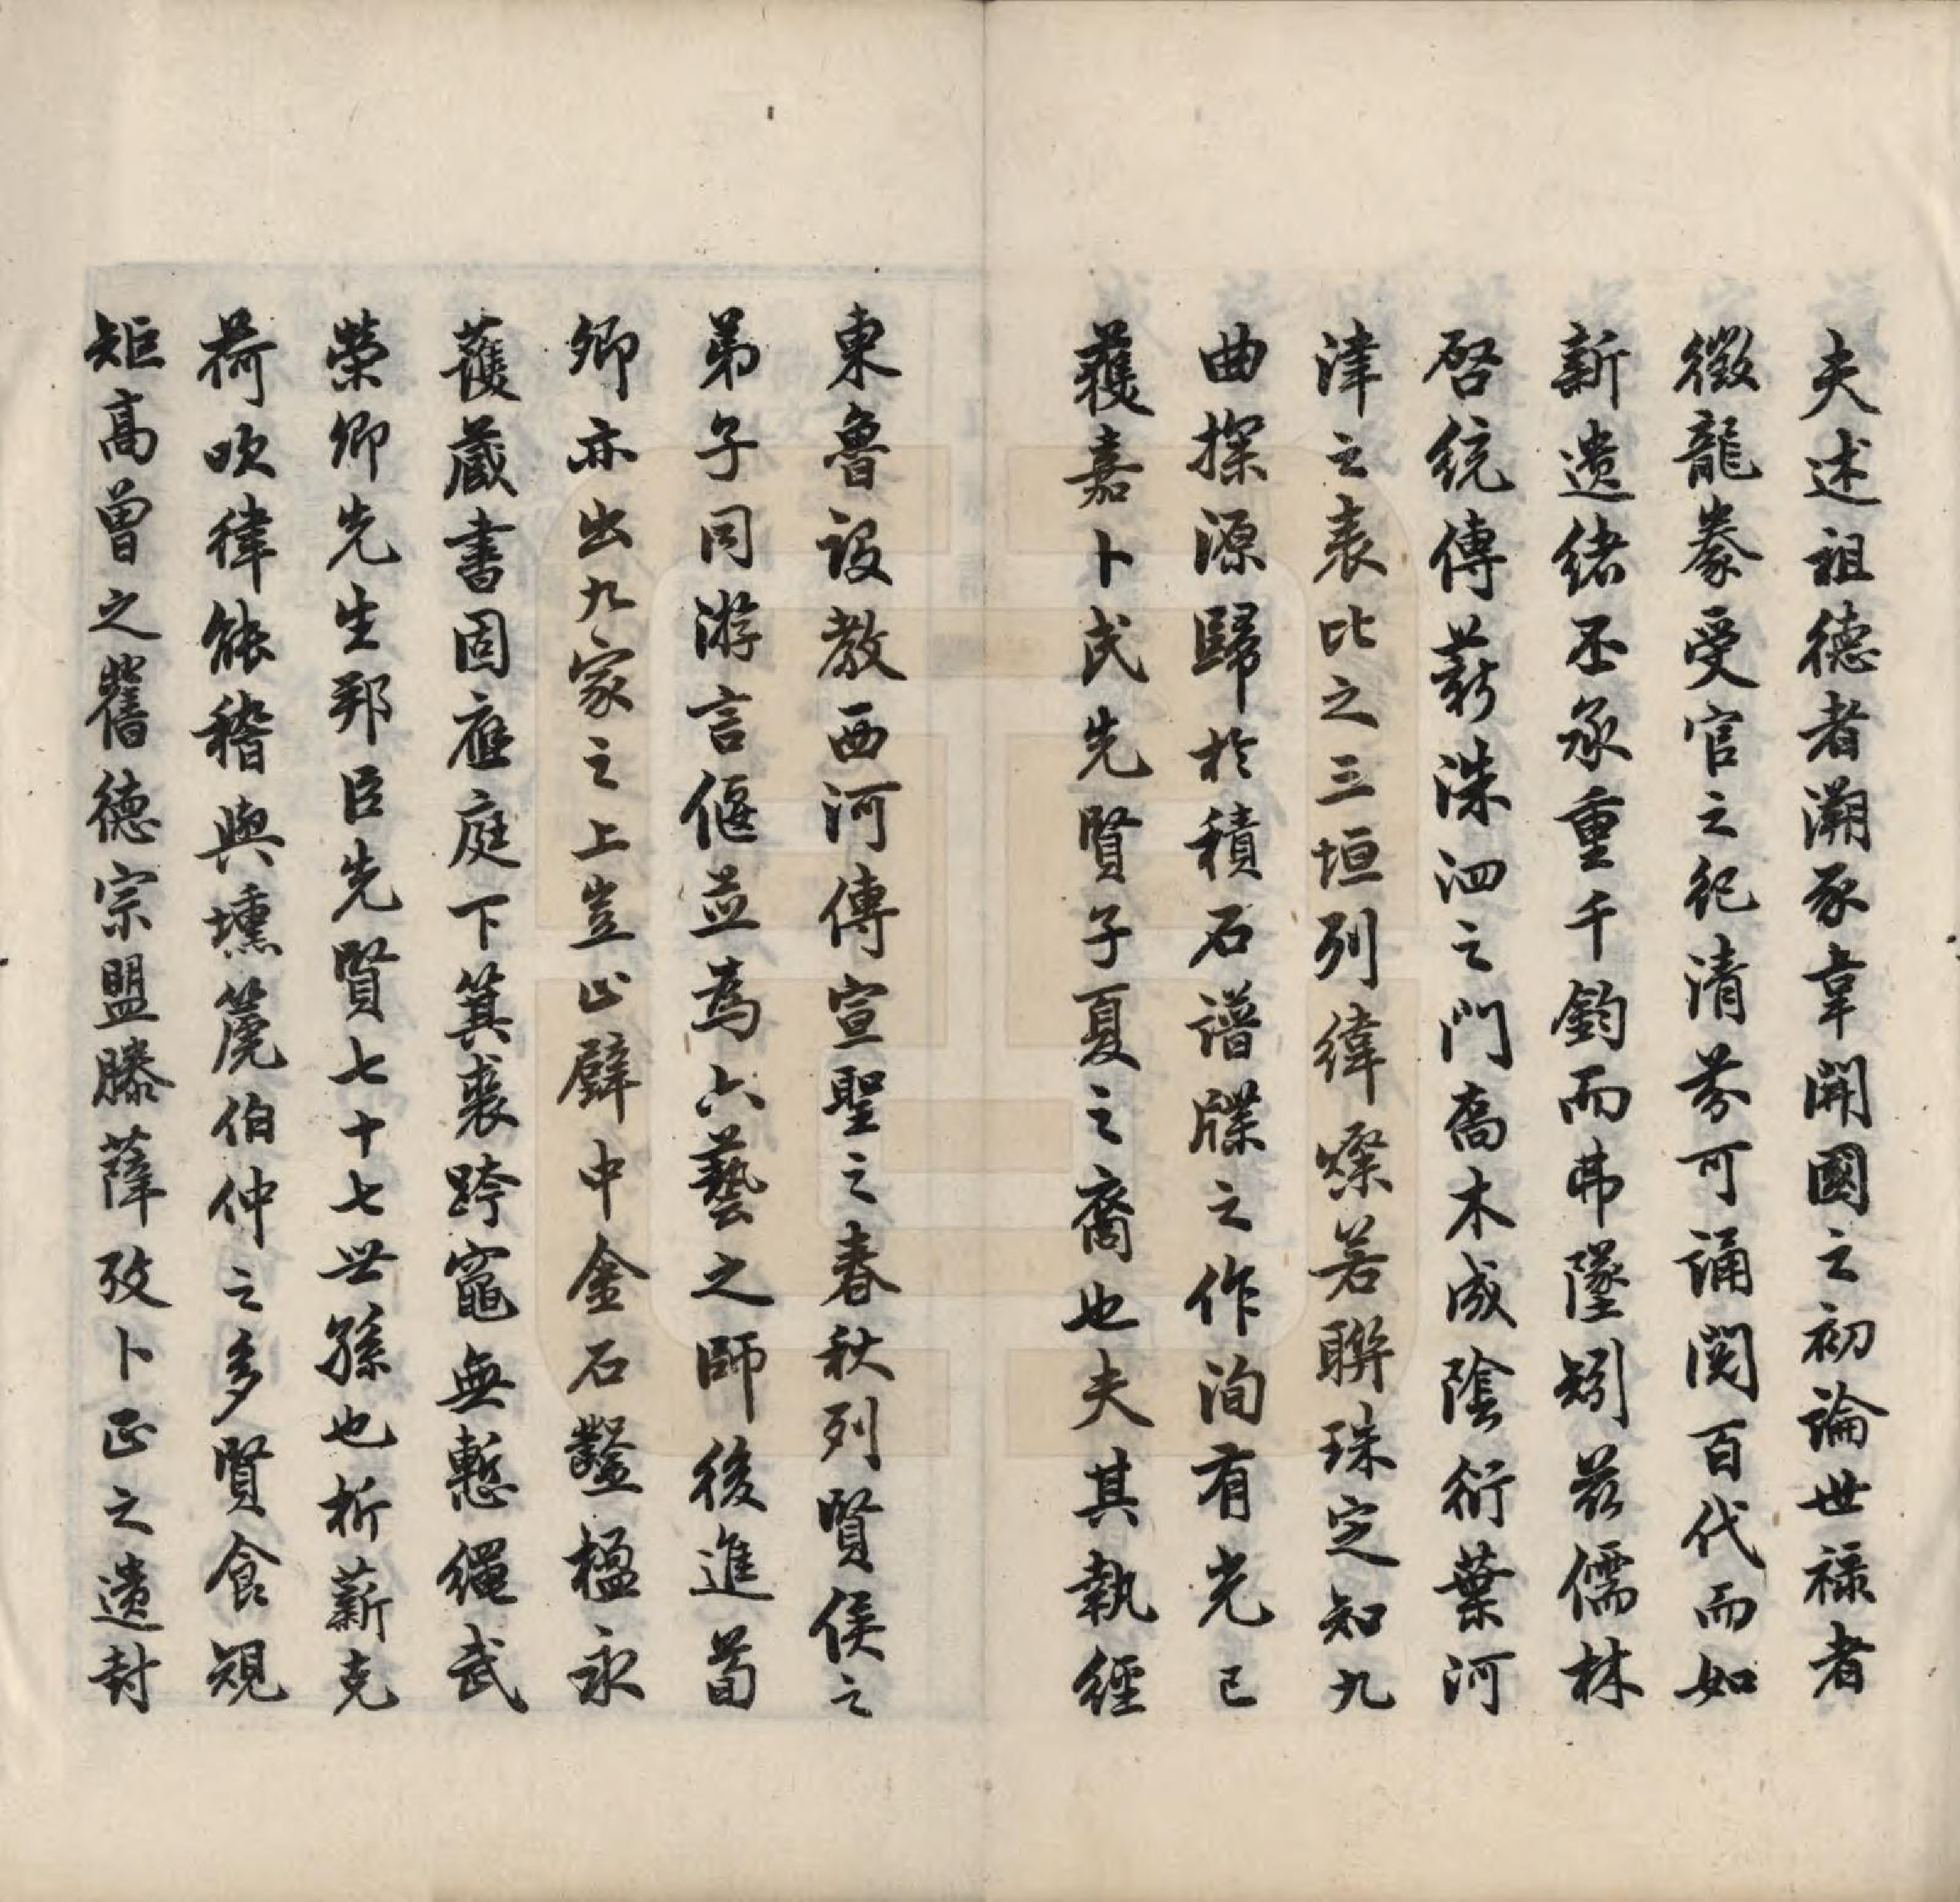 夫述祖德者溯豕韋開國之初論世祿者
徵龍豢受官之紀清芬可誦閱百代而如
新遺緒丕承重千鈞而弗墜矧茲儒林
啓統傳薪洙泗之門喬木成陰衍葉河
津之表比之三垣列緯燦若聯珠定知九
曲探源歸於積石譜牒之作洵有光已
獲嘉卜氏先賢子夏之裔也夫其執經
東魯設教西河傳宣聖之春秋列賢侯之
弟子同游言偃並為六藝之師後進荀
卿亦出九家之上豈止壁中金石鑿楹永
護藏書固應庭下箕裘跨竈無慙繩武
榮卿先生郅臣先賢七十七世孫也析薪克
荷吹律能稽與壎篪伯仲之多賢食規
矩高曾之舊德宗盟滕薛攷卜正之遺封